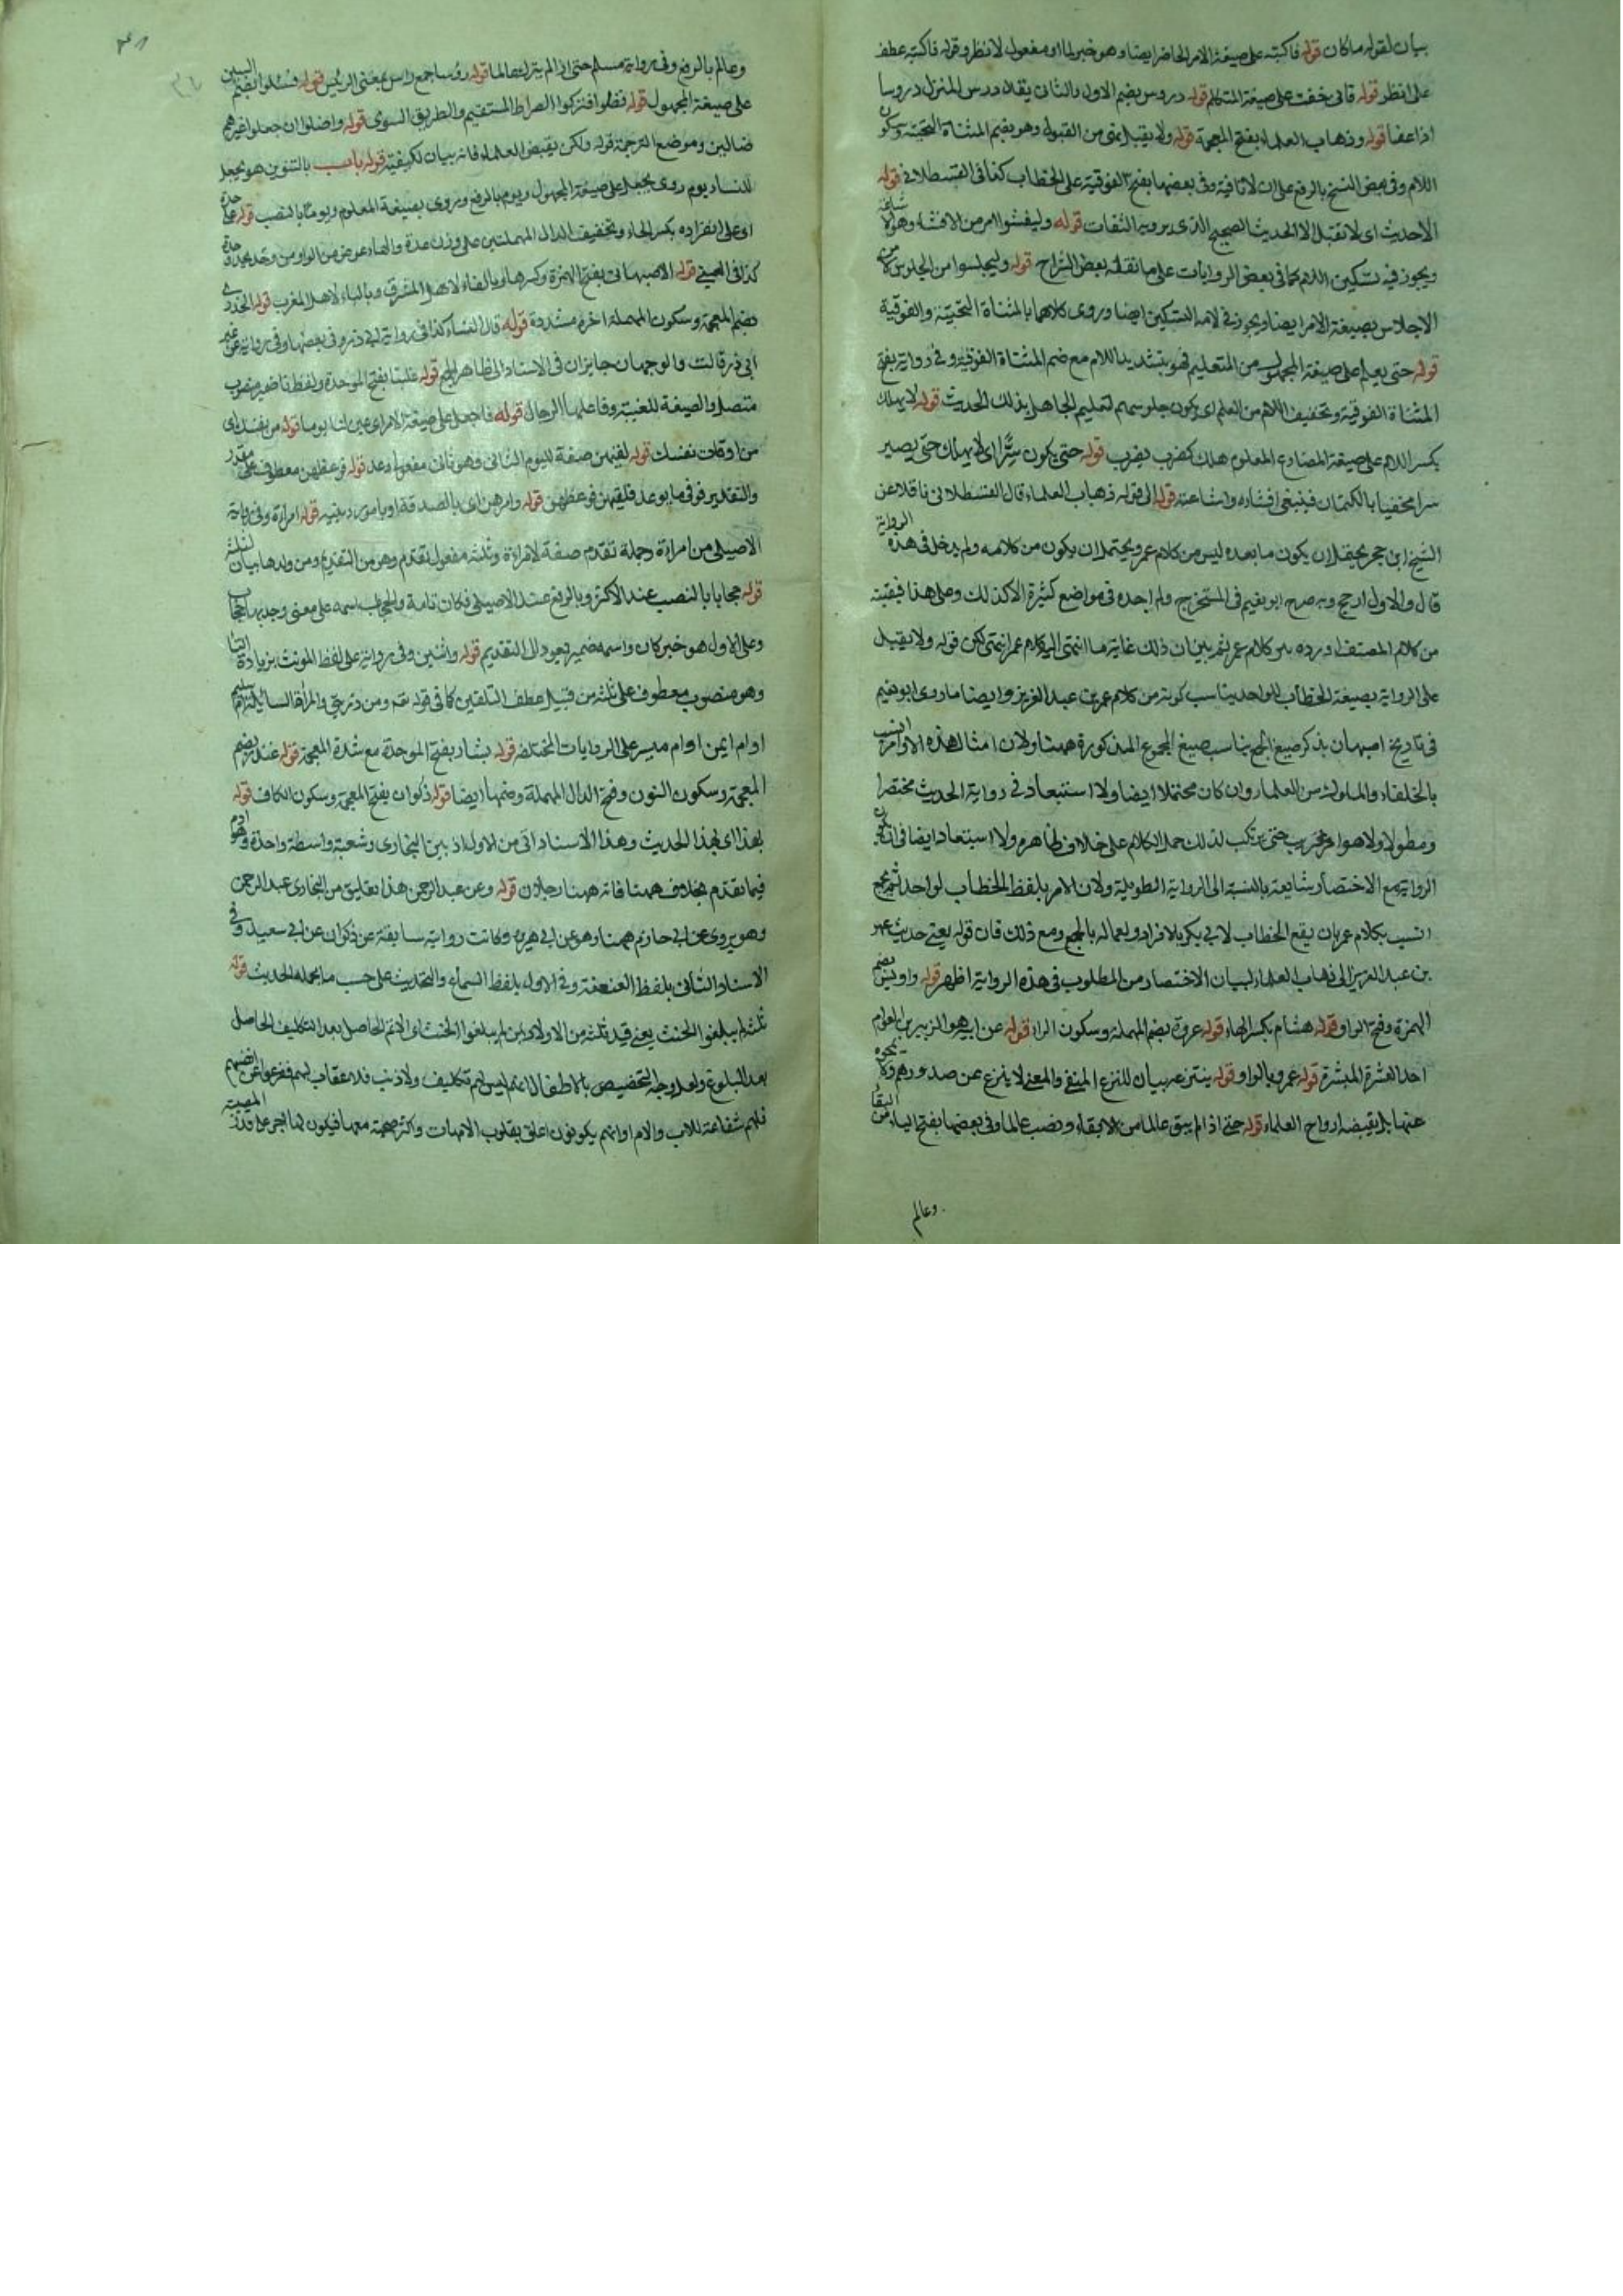 بيان لقوله ما كان قوله فاكتبه على صيغة الامر الحاضر ايضا وهو خبر لما او مفعول لانظر وقوله فاكتبه عطف
على انظر قوله فانى خفت على صيغة المتكلم قوله دروس بضم الاول والثانى يقال درس المنزل دروسا
اذا عفا قوله وذهاب العلماء بفتح المعجمة قوله ولا يقبل نفى من القبول وهو بضم المثناة التحتية وسكون
اللام وفى بعض النسخ بالرفع على ان لا نافية وفى بعضها بفتح الفوقية على الخطاب كما فى القسطلانى قوله
الا حديث اى لا تقبل الا الحديث الصحيح الذى يرويه الثقات قوله وليفشوا امر من الافشاء وهو الاشاعة
ويجوز فيه تسكين اللام كما فى بعض الروايات على ما نقله بعض الشراح قوله وليجلسوا من الجلوس لا من
الاجلاس بصيغة الامر ايضا ويجوز فى لامه التسكين ايضا وروى كلاهما بالمثناة التحتية والفوقية
قوله حتى يعلم على صيغة المجهول من التعليم فهو بتشديد اللام مع ضم المثناة الفوقية وفى رواية بفتح
المثناة الفوقية وتخفيف اللام من العلم اى يكون جلوسهم لتعليم الجاهل بذلك الحديث قوله لا يهلك
بكسر اللام على صيغة المضارع المعلوم هلك كضرب يضرب قوله حتى يكون سرا اى لا يهلك حتى يصير
سرا مخفيا بالكتمان فينبغى افشاؤه واشاعته قوله الى قوله ذهاب العلماء قال القسطلانى ناقلا عن
الشيخ ابن حجر يحتمل ان يكون ما بعده ليس من كلام عمر ويحتمل ان يكون من كلامه ولم يدخل فى هذه الرواية
قال والاول ارجح وبه صرح ابو نعيم فى المستخرج ولم اجده فى مواضع كثيرة الا كذلك وعلى هذا فبقيته
من كلام المصنف اورده بين كلام عمر ثم بين ان ذلك غاية ما انتهى اليه كلام عمر انتهى لكن قوله ولا تقبل
على الرواية بصيغة الخطاب للواحد يناسب كونه من كلام عمر بن عبد العزيز وايضا ما روى ابو نعيم
فى تاريخ اصبهان بذكر صيغ الجمع يناسب صيغ الجموع المذكورة ههنا ولان امثال هذه الاوامر انسب
بالخلفاء والملوك من العلماء وان كان محتملا ايضا ولا استبعاد فى رواية الحديث مختصرا
ومطولا ولا هو امر غريب حتى يرتكب لذلك حمل الكلام على خلاف ظاهره ولا استبعاد ايضا فى ان يكون
الرواية مع الاختصار شايعة بالنسبة الى الرواية الطويلة ولان الامر بلفظ الخطاب لواحد ثم بجمع
انسب بكلام عمر بان يقع الخطاب لابى بكر بالافراد ولعماله بالجمع ومع ذلك فان قوله يعنى حديث عمر
بن عبد العزيز الى ذهاب العلماء لبيان الاختصار من المطلوب فى هذه الرواية اظهر قوله واويس بضم
الهمزة وفتح الواو قوله هشام بكسر الهاء قوله عروة بضم المهملة وسكون الراء قوله عن ابيه هو الزبير بن العوام
احد العشرة المبشرة قوله عمرو بالواو قوله ينتزعه بيان للنزع المنفى والمعنى لا ينزع عن صدورهم ولا يمحوه
عنها بل يقبضه ارواح العلماء قوله حتى اذا لم يبق عالما من الابقاء ونصب عالما وفى بعضها بفتح الياء من البقاء
وعالم
وعالم بالرفع وفى رواية مسلم حتى اذا لم يترك عالما قوله رؤسا جمع راس بمعنى الرئيس قوله فسئلوا بضم السين
على صيغة المجهول قوله فضلوا فتركوا الصراط المستقيم والطريق السوى قوله واضلوا ان جعلوا غيرهم
ضالين وموضع الترجمة قوله ولكن يقبض العلماء فانه بيان لكيفيته قوله باب بالتنوين هو يجعل
للنساء يوم روى يجعل على صيغة المجهول ويوم بالرفع وروى بصيغة المعلوم ويوما بالنصب قوله على حدة
اى على انفراده بكسر الحاء وتخفيف الدال المهملتين على وزن عدة والهاء عوض من الواو من وحد يحد وحدة
كذا فى العينى قوله الاصبهانى بفتح الهمزة وكسرها وبالفاء لاهل المشرق وبالباء لاهل المغرب قوله الخدرى
بضم المعجمة وسكون المهملة اخره مشددة قوله قال النساء كذا فى رواية ابى ذر وفى بعضها وفى رواية عن غير
ابى ذر قالت والوجهان جايزان فى الاسناد الى ظاهر الجمع قوله غلبنا بفتح الموحدة ولفظ نا ضمير منصوب
متصل والصيغة للغيبة وفاعلها الرجال قوله فاجعل على صيغة الامر اى عين لنا يوما قوله من نفسك اى
من اوقات نفسك قوله لقيهن صفة لليوم الثانى وهو ثانى مفعولى وعد قوله فوعظهن معطوف على مقدر
والتقدير فوفى ما يوعد فلقيهن فوعظهن قوله وامرهن اى بالصدقة او بامور دينية قوله امراة وفى رواية
الاصيلى من امراة وجملة تقدم صفة لامراة وثلثة مفعول تقدم وهو من التقديم ومن ولدها بيان لثلثة
قوله حجابا بالنصب عند الاكثر وبالرفع عند الاصيلى فكان تامة والحجاب اسمه على معنى وجد بها حجاب
وعلى الاول هو خبر كان واسمه ضمير يعود الى التقديم قوله واثنين وفى رواية على لفظ المونث بزيادة التاء
وهو منصوب معطوف على ثلثة من قبيل عطف التلقين كما فى قوله تعم ومن ذريتى والمراة السائلة ام سليم
او ام ايمن او ام مبشر على الروايات المختلفة قوله بشار بفتح الموحدة مع شدة المعجمة قوله غندر بضم
المعجمة وسكون النون وفتح الدال المهملة وضمها ايضا قوله ذكوان بفتح المعجمة وسكون الكاف قوله
بهذا اى بهذا الحديث وهذا الاسناد ادنى من الاول اذ بين البخارى وشعبة واسطة واحدة وهو ادم
فيما تقدم بخلاف ههنا فانه ههنا رجلان قوله وعن عبد الرحمن هذا تعليق من البخارى عبد الرحمن
وهو يروى عن ابى حازم ههنا وهو عن ابى هريرة وكانت رواية سابقة عن ذكوان عن ابى سعيد وفى
الاسناد الثانى بلفظ العنعنة وفى الاول بلفظ السماع والتحديث على حسب ما يحمله الحديث قوله
ثلثة لم يبلغوا الحنث يعنى قيد ثلثة من الاولاد بمن لم يبلغوا الحنث اى الاثم الحاصل بعد التكليف الحاصل
بعد البلوغ ولعل وجه التخصيص بالاطفال لانهم ليس لهم تكليف ولا ذنب فلا عقاب لهم ففرغوا عن انفسهم
فلهم شفاعة للاب والام او انهم يكونون اعلق بقلوب الامهات وكثر صحبته معها فيكون لها اجر على قدر المصيبة